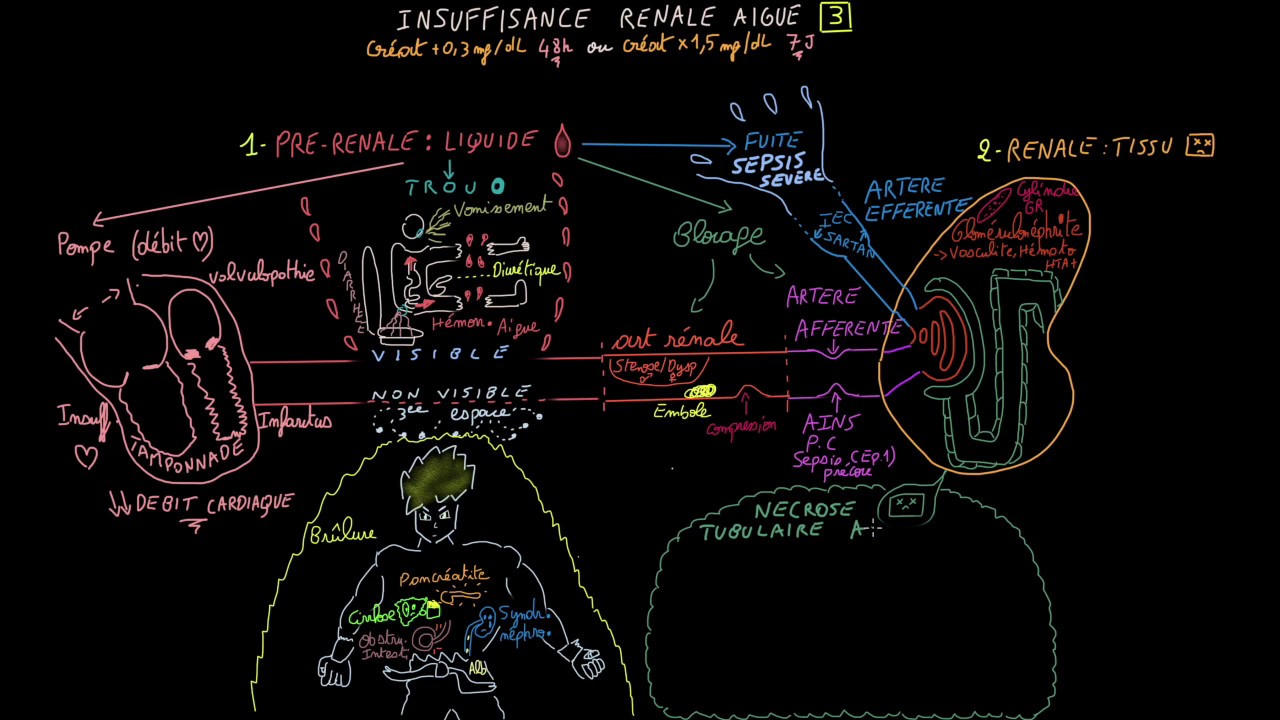 INSUFFISANCE RENALE AIGUE 3
Créat +0,3 mg/dL 48h ou créat x1,5 mg/dL 7J
1- PRE-RENALE : LIQUIDE
TROU
Vomissement
DIARRHEE
Diurétique
Hémor. Aigue
VISIBLE
NON VISIBLE
3ee espace
Pompe (débit ♡)
valvulopathie
Insuff.
♡
Infarctus
TAMPONNADE
↓↓ DEBIT CARDIAQUE
Brûlure
Pancréatite
Cirrhose
Obstru.
Intest.
Syndr.
néphro.
Alb
FUITE
SEPSIS
SEVERE
Blocage
art rénale
Stenose/Dysp
♂ ♀
Embole
compression
ARTERE
AFFERENTE
AINS
P.C
Sepsis (Ep.1)
précoce
ARTERE
EFFERENTE
IEC
SARTAN
2- RENALE : TISSU
Cylindre
GR
Glomérulonéphrite
-> Vasculite, Hémato
HTA+
NECROSE
TUBULAIRE A